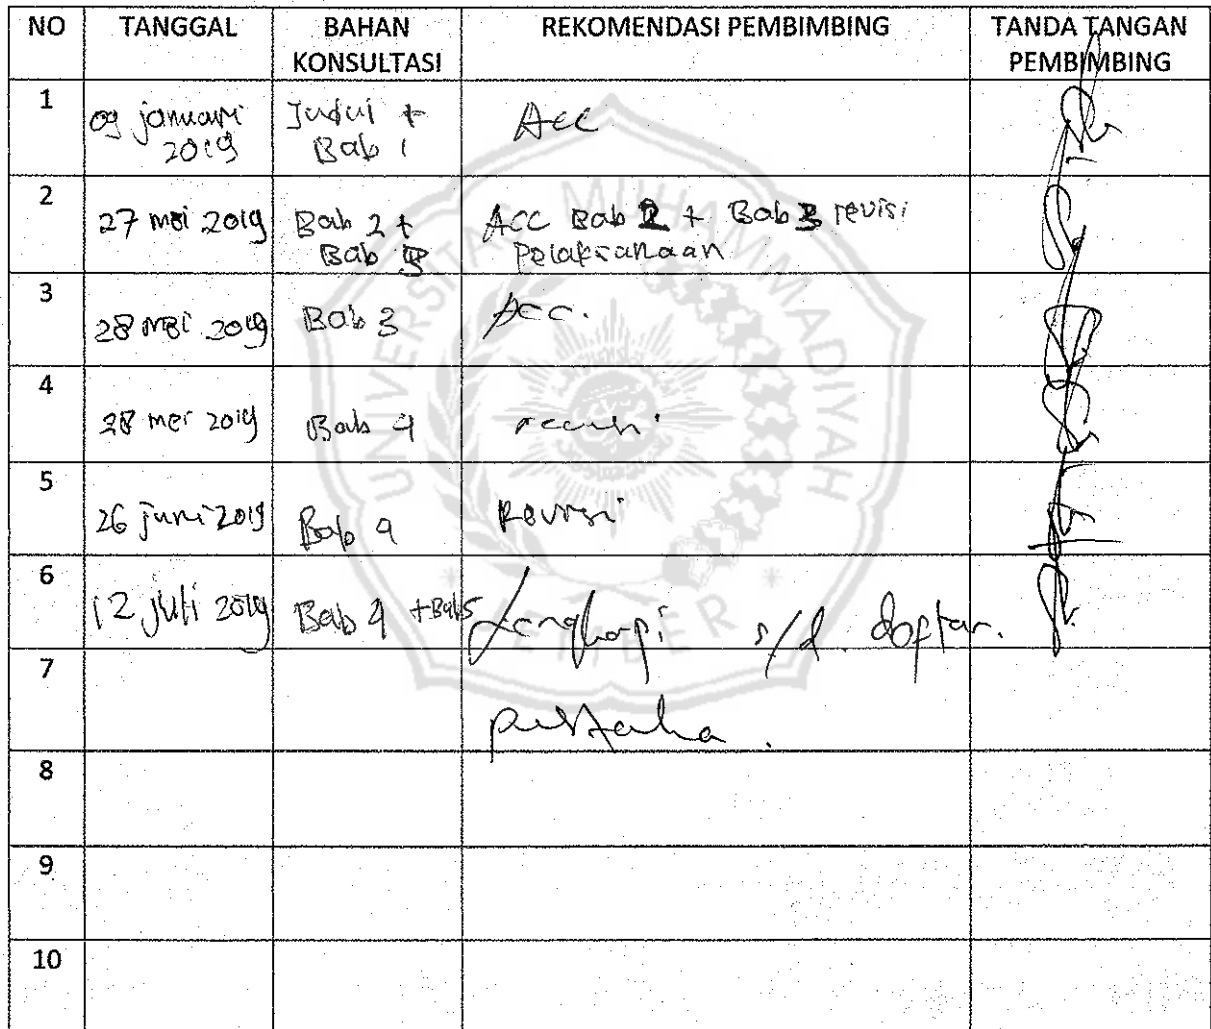 NO TANGGAL BAHAN KONSULTASI REKOMENDASI PEMBIMBING TANDA TANGAN PEMBIMBING
1 09 januari 2019 Judul + Bab 1 Acc
2 27 mei 2019 Bab 2 + Bab 3 ACC Bab 2 + Bab 3 revisi Pelaksanaan
3 28 mei 2019 Bab 3 Acc.
4 28 mei 2019 Bab 4 revisi
5 26 juni 2019 Bab 4 Revisi
6 12 juli 2019 Bab 4 + Bab 5 Lengkapi s/d. daftar.
7 pustaka.
8
9
10
UNIVERSITAS MUHAMMADIYAH
JEMBER